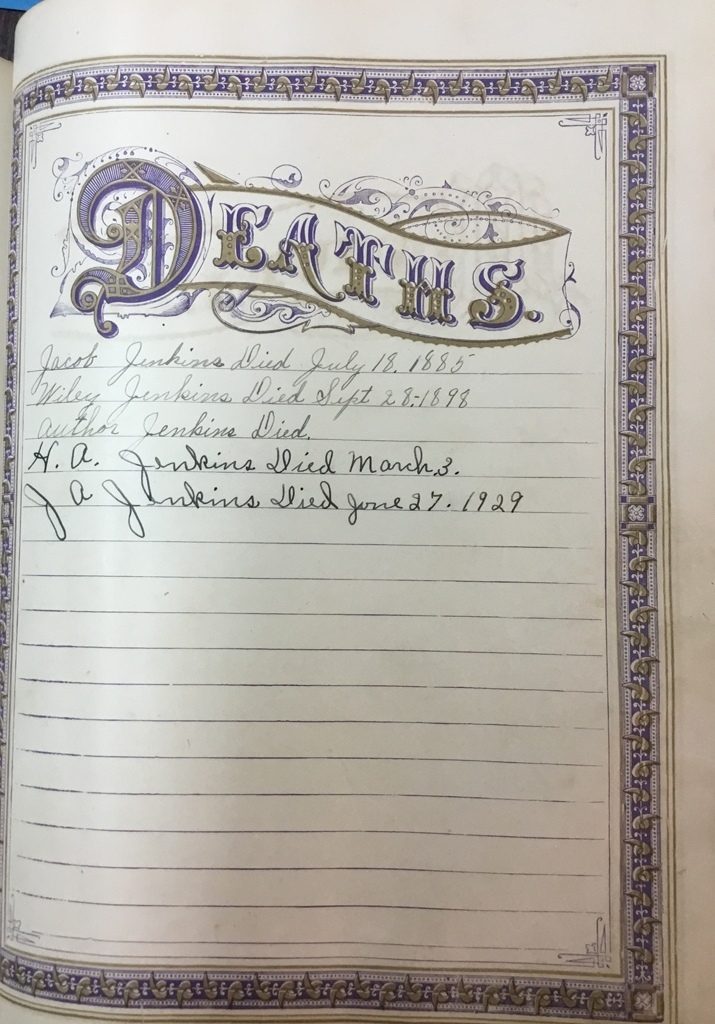 DEATHS.
Jacob Jenkins Died July 18. 1885
Wiley Jenkins Died Sept 28-1898
author Jenkins Died.
H. A. Jenkins Died March 3.
J A Jenkins Died June 27. 1929